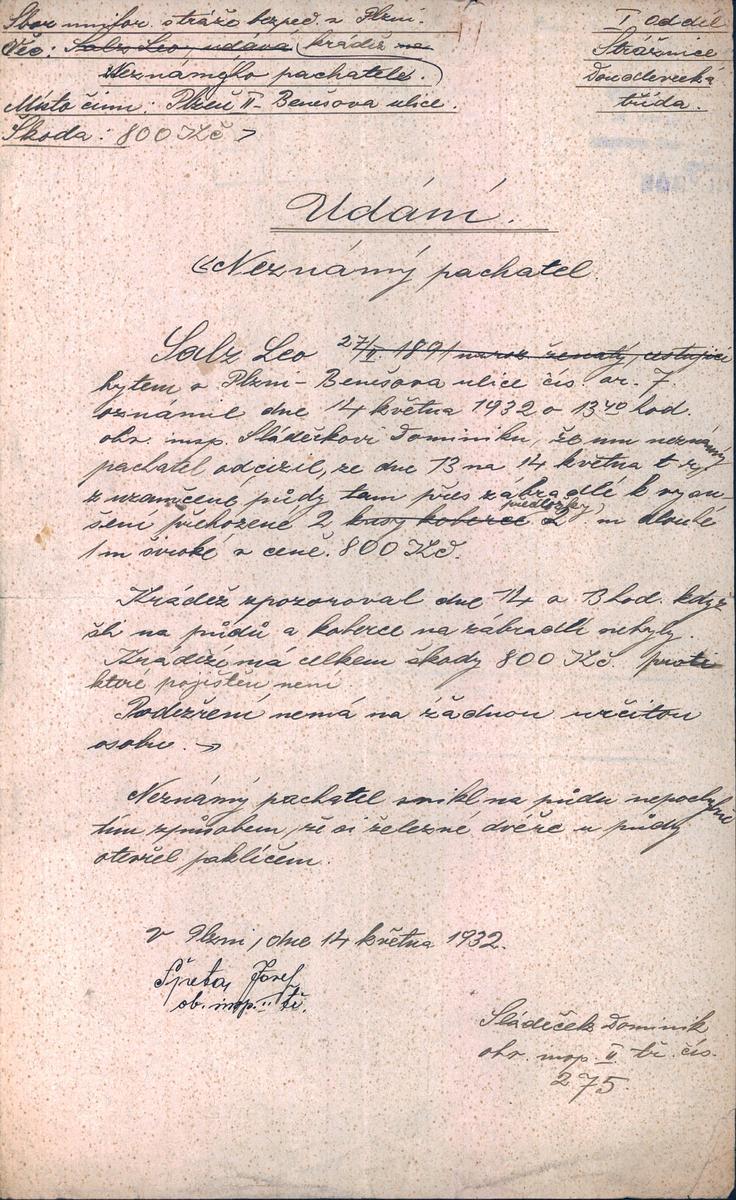 Sbor unifor. stráže bezpeč. v Plzni.
Věc: Salz Leo, udává krádež na
Neznámýho pachatele.
Místo činu: Plzeň II - Benešova ulice.
Škoda: 800 Kč
I. Oddíl
Strážnice
Doudlevecká
třída.
Udání.
Neznámý pachatel.
Salz Leo 27/II. 1891 naroz. ženatý, cestující
bytem v Plzni - Benešova ulice čís. or. 7.
oznámil dne 14 května 1932 o 13 40 hod.
obv. insp. Sládečkovi Dominiku, že mu neznámý
pachatel odcizil, ze dne 13 na 14 května t. r,
z uzamčené půdy tam přes zábradlé k vysu-
šení přehozené 2 kusy koberce předložky 2 m dlouhé
1 m široké v ceně. 800 Kč.
Krádež zpozoroval dne 14 o 13 hod. když
šli na půdu a koberce na zábradlí nebyly.
Krádeží má celkem škody 800 Kč. proti
které pojištěn není
Podezření nemá na žádnou určitou
osobu.
Neznámý pachatel vnikl na půdu nepochybně
tím způsobem, že si železné dvéře u půdy
otevřel paklíčem.
V Plzni, dne 14 května 1932.
Špeta, Josef
ob. insp. II tř.
Sládeček Dominik
obv. insp. II tř. čís.
275